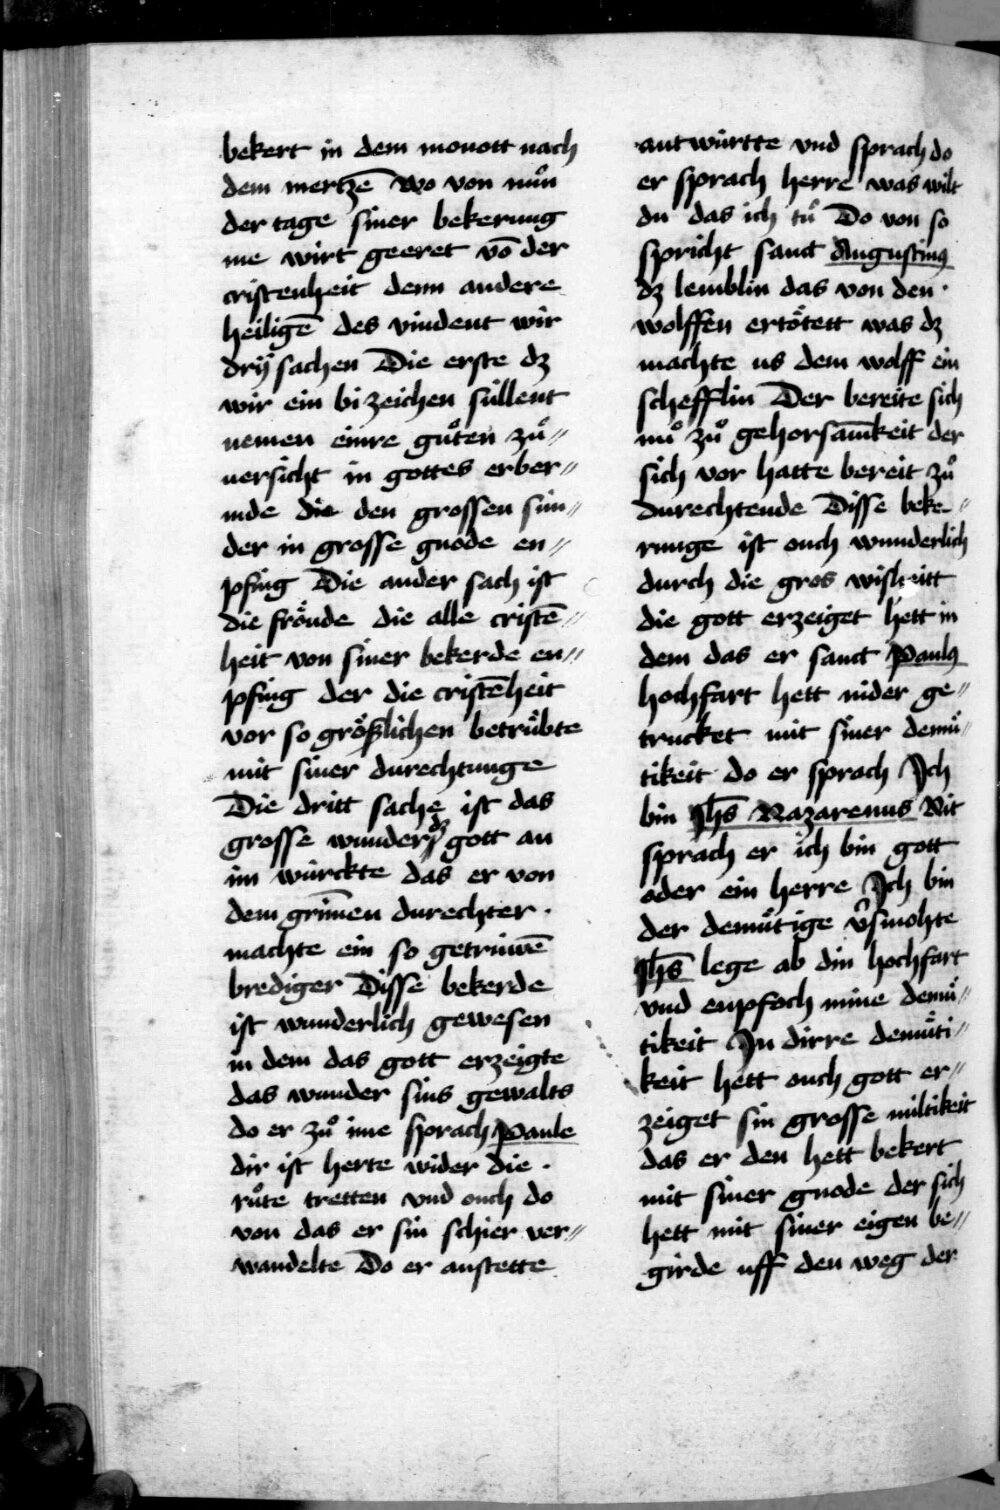 bekert in dem monott nach
dem mertzē wo von nuͦn
der tage siner bekerung
me wirt geeret vō der
cristenheit denn andere
heiligē des vindent wir
drÿ sachen Die erste dz
wir ein bi zeichen süllent
nemen einre guͦten zuͦ⸗
uersicht in gottes erber⸗
mde die den grossen sün⸗
der in grosse gnode en⸗
pfing Die ander sach ist
die froͤude die alle cristē⸗
heit von siner bekerde en⸗
pfing der die cristēheit
vor so groͤßlichen betruͤbte
mit siner durechtunge
Die dritt sache ist das
grosse wunder dz gott an
im würckte das er von
dem grim̄en durechter ·
machte ein so getrüwē
brediger Disse bekerde
ist wunderlich gewesen
in dem das gott erzeigte
das wunder sins gewalts
do er zuͦ ime sprach Paule
dir ist herte wider die ·
ruͦte tretten vnd ouch do
von das er sin schier ver⸗
wandelte Do er anstette
antwürtte vnd sprach do
er sprach herre was wilt
du das ich tuͦ Do von so
spricht sanct Augustinꝰ
dz lemblin das von den ·
wolffen ertoͤtett was dz
machte us dem wolff ein
schefflin Der bereite sich
nuͦ zuͦ gehorsam̄keit der
sich vor hatte bereit zuͦ
durechtende Disse beke⸗
runge ist ouch wunderlich
durch die gros wisheitt
die gott erzeiget hett in
dem das er sanct Paulꝰ
hochfart hett nider ge⸗
trucket mit siner demuͤ⸗
tikeit do er sprach Ich
bin Jhs̄ Nazarenus Nit
sprach er ich bin gott
oder ein herre Ich bin
der demuͤtige v̄smohte
Jhs̄ lege ab din hochfart
vnd enpfoch mine demuͤ⸗
tikeit In dirre demuͤti⸗
keit hett ouch gott er⸗
zeiget sin grosse miltikeit
das er den hett bekert
mit siner gnode der sich
hett mit siner eigen be⸗
girde uff den weg der